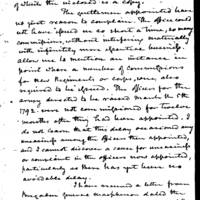 of which the inclosed is a copy.
The gentlemen appointed have
no just reason to complain. The office could
not have issued in so short a time, so many
commissions without interfering materially
with infinitely more essential business.
allow me to mention an instance in
point where a number of commissions
for new Regiments or corps, were also
required to be issued. The officers for the
army directed to be raised March the 5th
1792 were not commissioned for twelve
months after they had been appointed. I
do not learn that this delay occasioned any
uneasiness among the officers then appointed,
and I cannot discover a cause for uneasiness
or complaint in the officers now appointed,
particularly as there has yet been no
avoidable delay.
I have received a letter from
Brigadier General Macpherson dated the